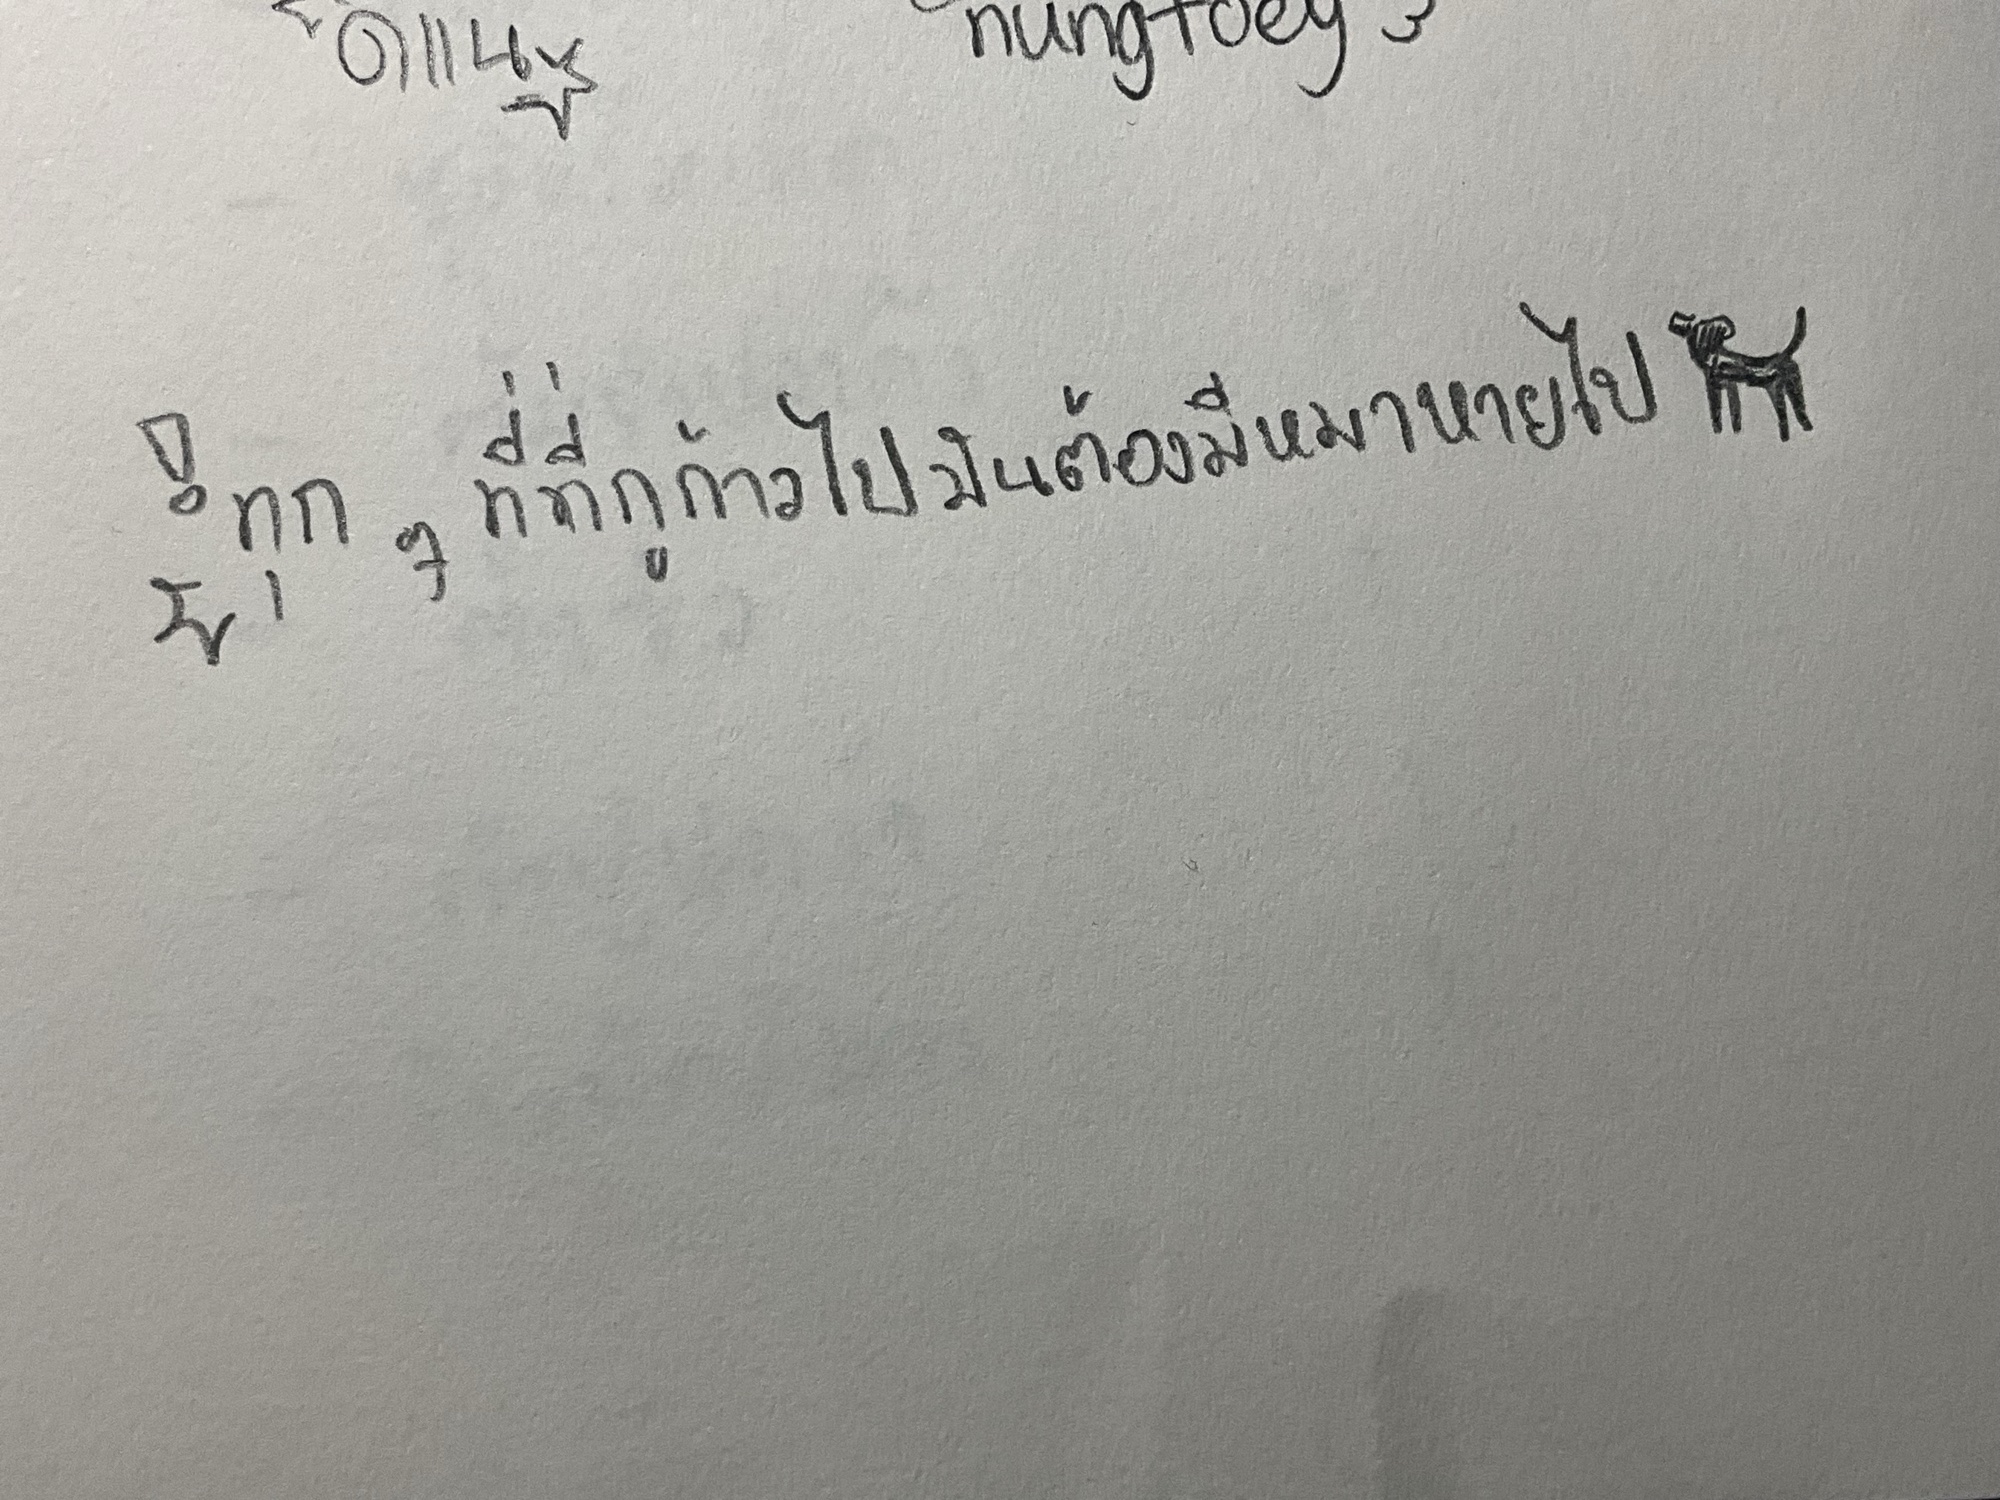 ดีแน่ nungtoey
ทุก ๆ ที่ที่กูก้าวไปมันต้องมีหมาหายไป